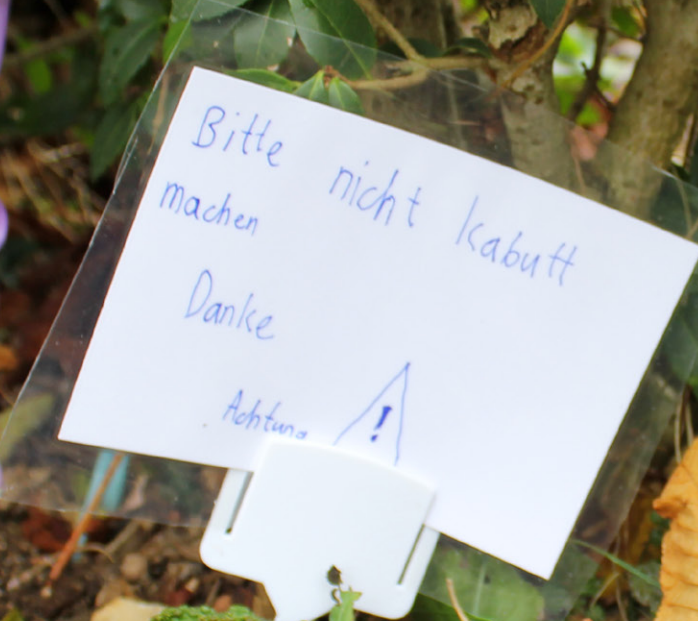 Bitte nicht kabutt
machen
Danke
Achtung !